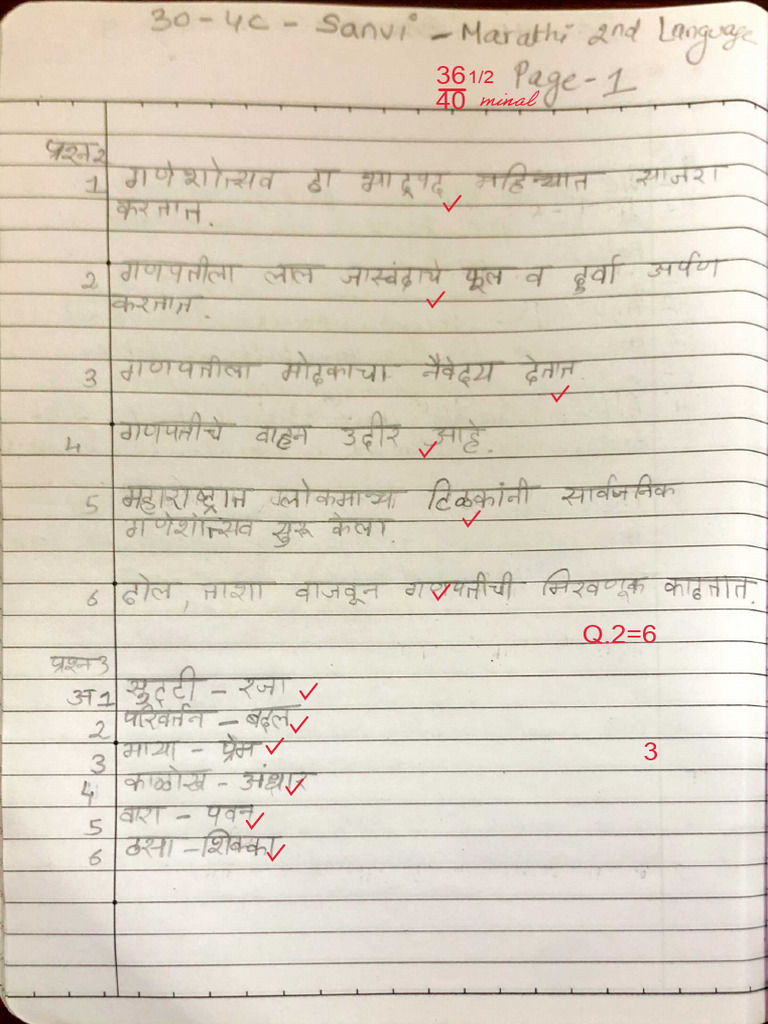 30-4C - Sanvi - Marathi 2nd Language
36 1/2 Page-1
40 minal
प्रश्न२
1 गणेशोत्सव हा भाद्रपद महिन्यात साजरा
करतात.
2 गणपतीला लाल जास्वंदाचे फूल व दुर्वा अर्पण
करतात.
3 गणपतीला मोदकाचा नैवेदय देतात
4 गणपतीचे वाहन उंदीर आहे.
5 महाराष्ट्रात लोकमान्या टिळकांनी सार्वजनिक
गणेशोत्सव सुरू केला.
6 ढोल, ताशा वाजवून गणपतीची मिरवणूक काढतात.
Q.2=6
प्रश्न३
अ1 सुट्टी - रजा
2 परिवर्तन - बदल
3 माया - प्रेम 3
4 काळोख - अंधार
5 वारा - पवन
6 ठसा - शिक्का